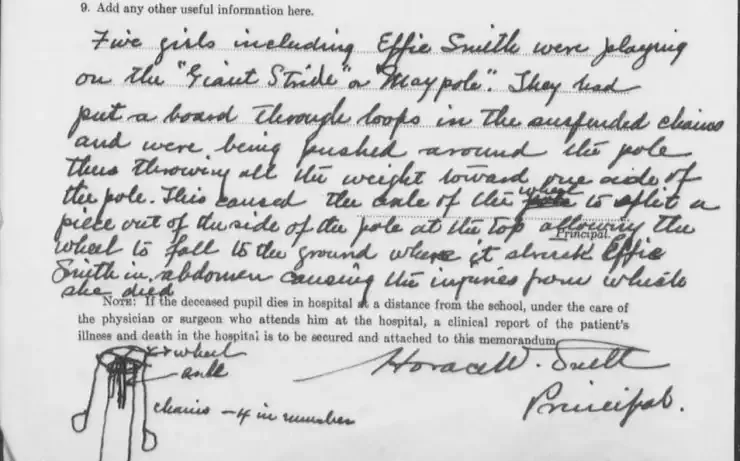 9. Add any other useful information here.
Five girls including Effie Smith were playing
on the "Giant Stride" or "Maypole". They had
put a board through loops in the suspended chains
and were being pushed around the pole
thus throwing all the weight toward one side of
the pole. This caused the axle of the wheel to split a
piece out of the side of the pole at the top allowing the
Principal.
wheel to fall to the ground where it struck Effie
Smith in abdomen causing the injuries from which
she died
NOTE: If the deceased pupil dies in hospital at a distance from the school, under the care of
the physician or surgeon who attends him at the hospital, a clinical report of the patient's
illness and death in the hospital is to be secured and attached to this memorandum.
wheel
axle
chains – 4 in number
Principal.